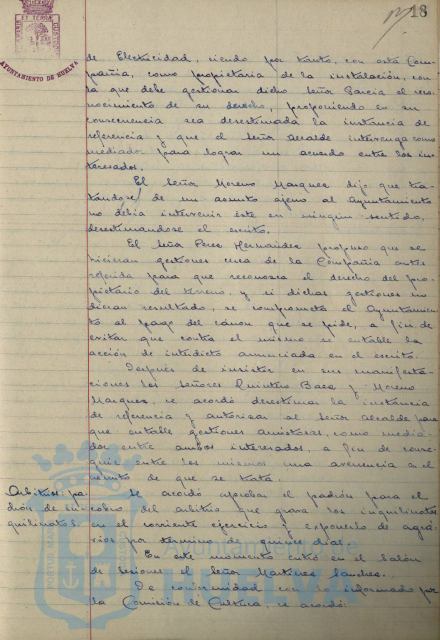 18
AYUNTAMIENTO DE HUELVA
de Electricidad, siendo por tanto, con esta Com-
pañia, como propietaria de la instalación, con
la que debe gestionar dicho Señor Garcia el reco-
nocimiento de su derecho, proponiendo en su
consecuencia sea desestimada la instancia de
referencia y que el Señor Alcalde intervenga como
mediador para lograr un acuerdo entre los in-
teresados.
El Señor Moreno Marquez dijo que tra-
tandose de un asunto ajeno al Ayuntamiento
no debia intervenir éste en ningun sentido,
desestimandose el escrito.
El Señor Perez Hernandez propuso que se
hicieran gestiones cerca de la Compañia antes
referida para que reconozca el derecho del pro-
pietario del terreno, y si dichas gestiones no
dieran resultado, se comprometa el Ayuntamien-
to al pago del cánon que se pide, a fin de
evitar que contra el mismo se entable la
acción de interdicto anunciada en el escrito.
Después de insistir en sus manifesta-
ciones los señores Quintero Baez y Moreno
Marquez, se acordó desestimar la instancia
de referencia y autorizar al Señor Alcalde para
que entable gestiones amistosas, como media-
dor entre ambos interesados, a fin de conse-
guir entre los mismos una avenencia en el
asunto de que se trata.
Arbitrios: pa-
drón de in-
quilinatos.
Se acordó aprobar el padrón para el
cobro del arbitrio que grava los inquilinatos
en el corriente ejercicio y exponerlo de agra-
vios por término de quince dias.
En este momento entró en el Salón
de sesiones el Señor Martinez Sanchez.
De conformidad con lo informado por
la Comisión de Cultura, se acordó:
Ayuntamiento de
HUELVA